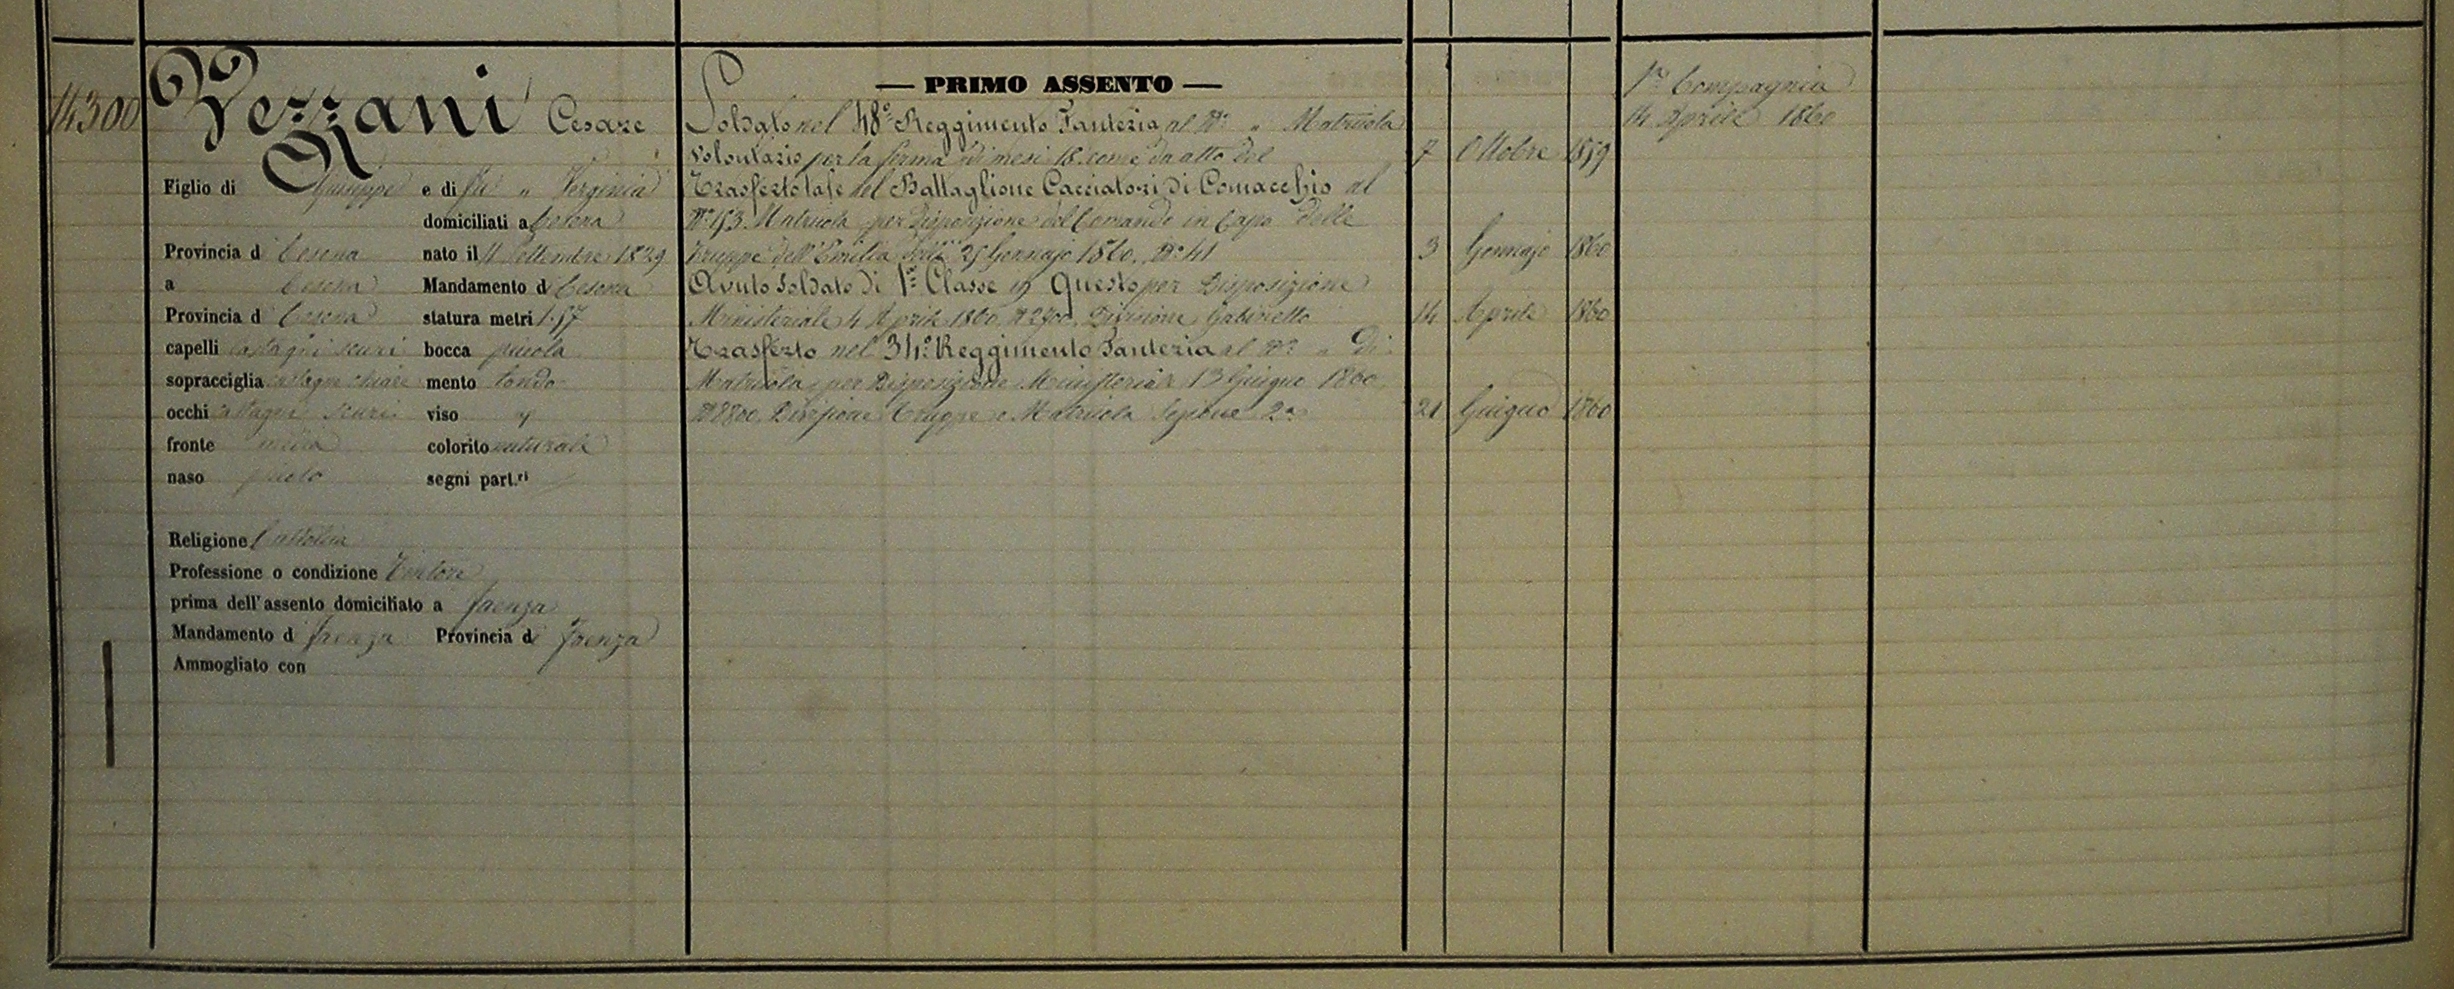 14300
Vezzani Cesare
Figlio di Giuseppe e di fu " Verginia
domiciliati a Cesena
Provincia di Cesena nato il 4 Settembre 1829
a Cesena Mandamento di Cesena
Provincia di Cesena statura metri 1.57
capelli castagni scuri bocca piccola
sopracciglia castagne chiare mento tondo
occhi castagni scuri viso
fronte media colorito naturale
naso segni part.ri
Religione Cattolica
Professione o condizione
prima dell'assento domiciliato a Faenza
Mandamento di Faenza Provincia di Faenza
Ammogliato con
— PRIMO ASSENTO —
Soldato nel 48º Reggimento Fanteria al Nº " Matricola
volontario per la ferma di mesi 18 come da atto del 7 Ottobre 1859
Trasferto tale nel Battaglione Cacciatori di Comacchio al
Nº 153 Matricola per disposizione del Comando in Capo delle
Truppe dell'Emilia 25 Gennajo 1860. Nº 41 3 Gennajo 1860
Avuto soldato di 1ª Classe in Questo per Disposizione
Ministeriale 4 Aprile 1860 Nº 2900. Divisione Gabinetto 14 Aprile 1860
Trasferto nel 34º Reggimento Fanteria al Nº " di
Matricola per Disposizione Ministeriale 13 Giugno 1860
Nº 8800. Divisione Truppe e Matricola Sezione 2ª 21 Giugno 1860
1ª Compagnia
14 Aprile 1860